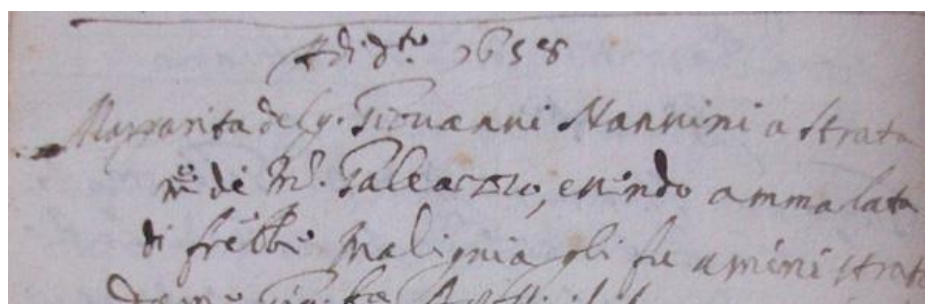 Adi d.to 1658
Margarita del q. Giovanni Nannini a Strata
di M. Galeazzo, essendo ammalata
di frebbe malignia gli fu aministrat